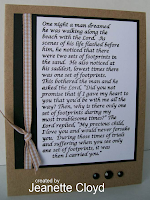 One night a man dreamed
he was walking along the
beach with the Lord. As
scenes of his life flashed before
him, he noticed that there
were two sets of footprints in
the sand. He also noticed at
his saddest, lowest times there
was one set of footprints.
This bothered the man and he
asked the Lord, "Did you not
promise that if I gave my heart to
you that you'd be with me all the
way? Then, why is there only one
set of footprints during my
most troublesome times?" The
Lord replied, "My precious child,
I love you and would never forsake
you. During those times of trials
and suffering when you see only
one set of footprints, it was
then I carried you."
created by
Jeanette Cloyd